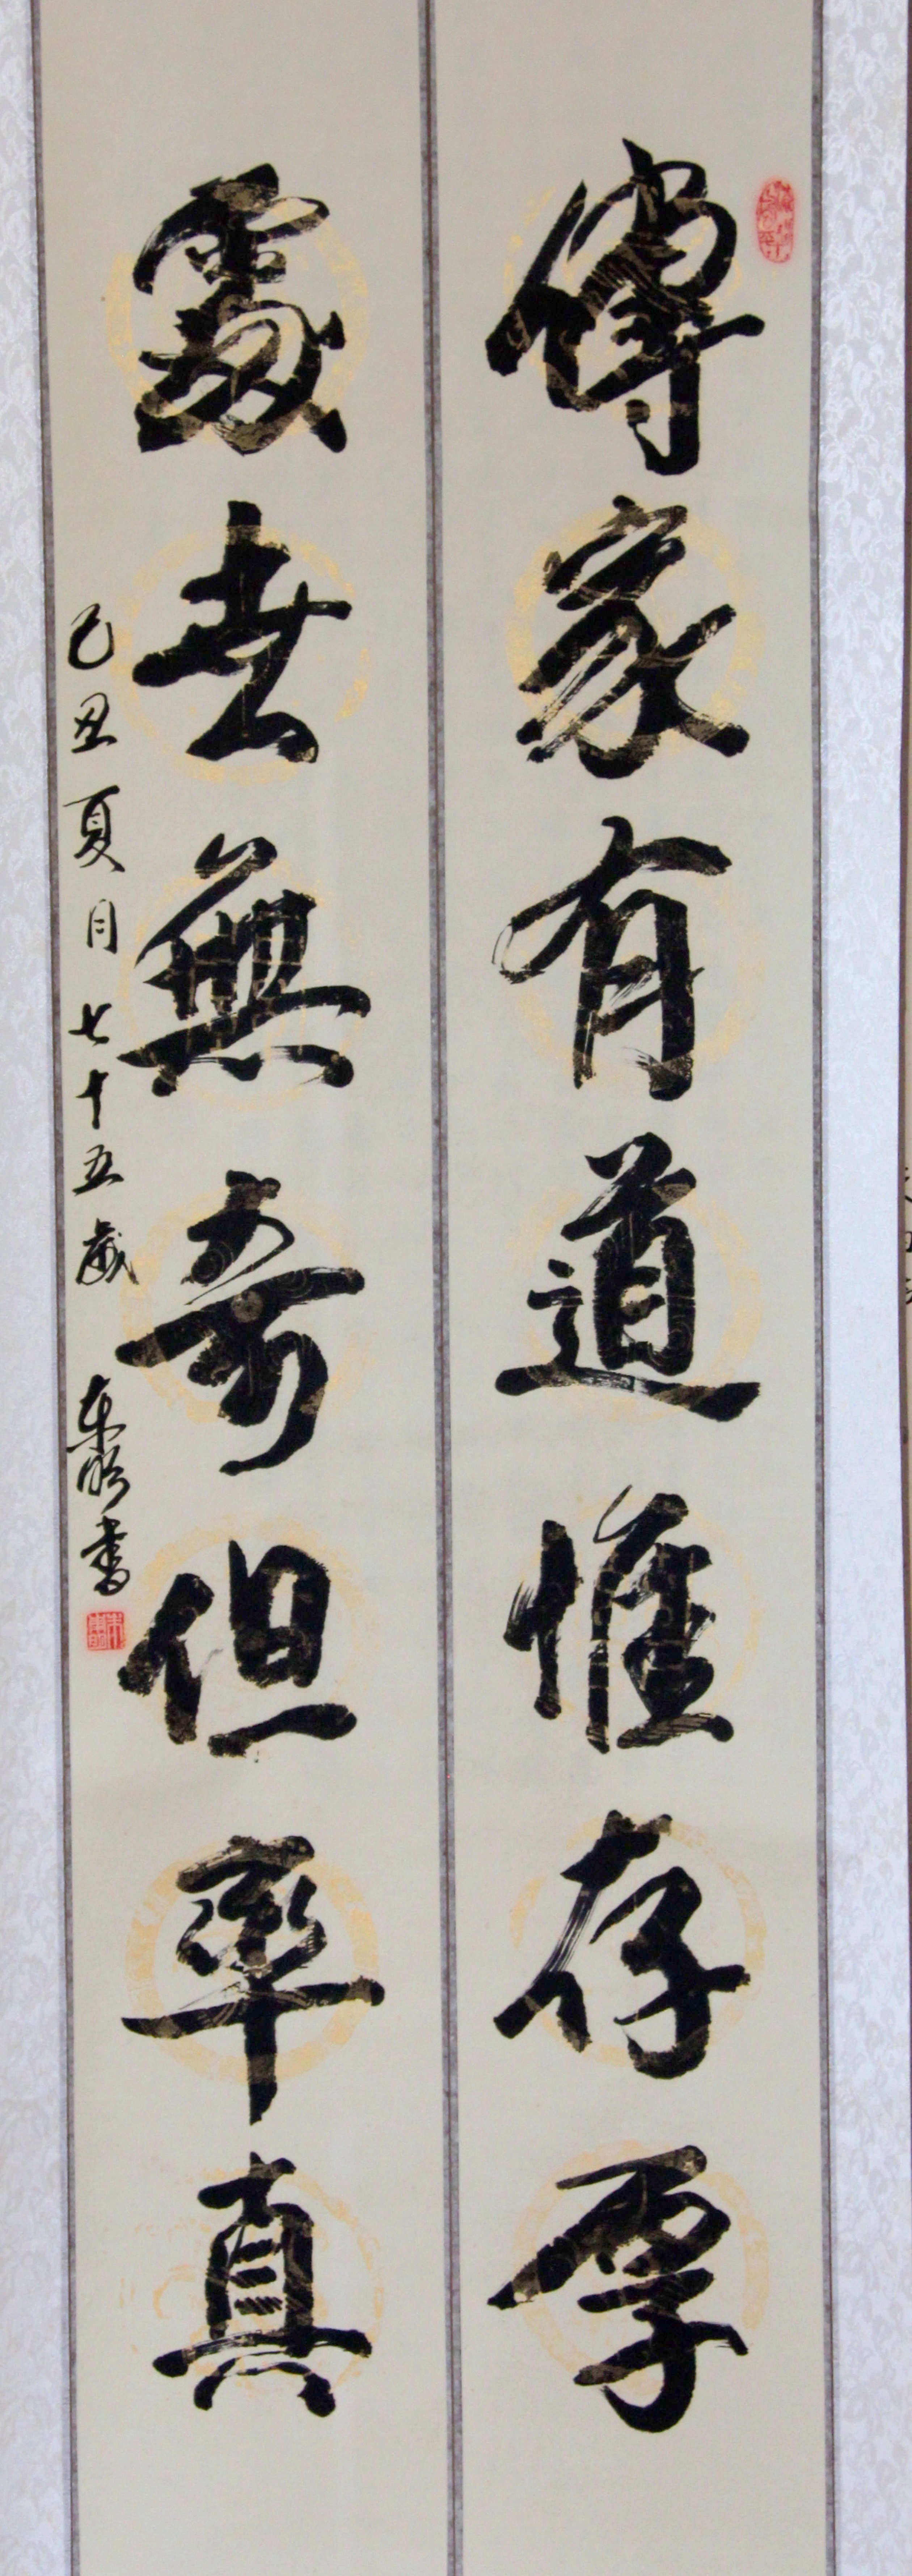 傳家有道惟存厚
處世無奇但率真
己丑夏月七十五歲 東明書